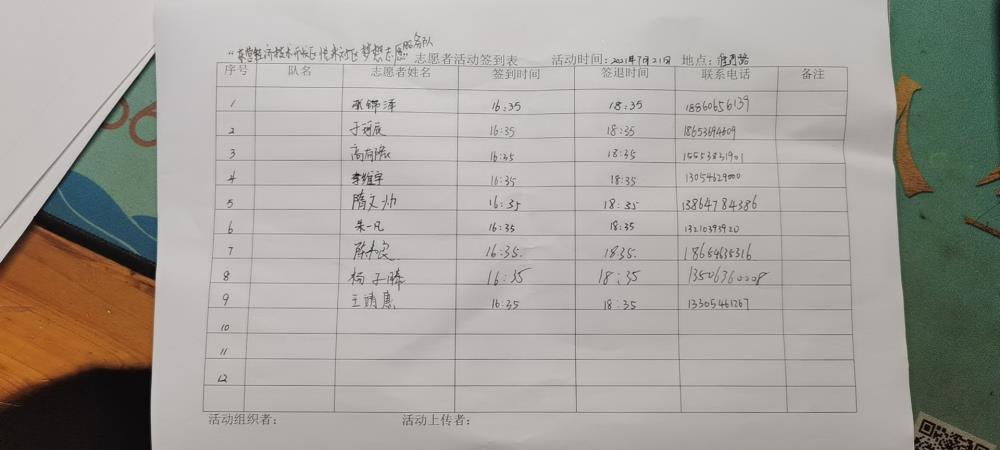 服务队
"东营经济技术开发区悦来社区梦想志愿" 志愿者活动签到表 活动时间：2021年7月21日 地点：
序号 队名 志愿者姓名 签到时间 签退时间 联系电话 备注
1 锦泽 16:35 18:35 18860656139
2 于 辰 16:35 18:35 18653694609
3 高 16:35 18:35 15553831901
4 李维宇 16:35 18:35 13054629000
5 隋文帅 16:35 18:35 13864784386
6 朱一凡 16:35 18:35 13210393920
7 陈 良 16:35. 1835. 18654635316
8 杨子腾 16:35 18:35 13506360008
9 王靖惠 16:35 18:35 13305461267
10
11
12
活动组织者： 活动上传者：